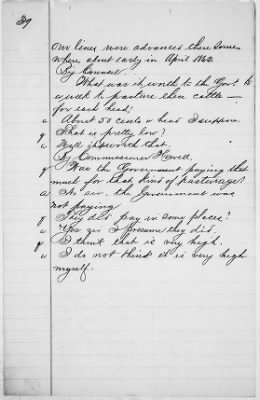 39
our lines were advanced then some
where about early in April 1862.
By Counsel.
What was it worth to the Gov't. by
a week to pasture these cattle —
for each head?
a About 50 cents a head I suppose
q That is pretty low?
a Well it is worth that.
By Commissioner Howell.
q Was the Government paying that
much for that kind of pasturage?
a No sir. the Government was
not paying
q They did pay in some places?
a Yes sir I presume they did.
q I think that is very high.
a I do not think it is very high
myself.